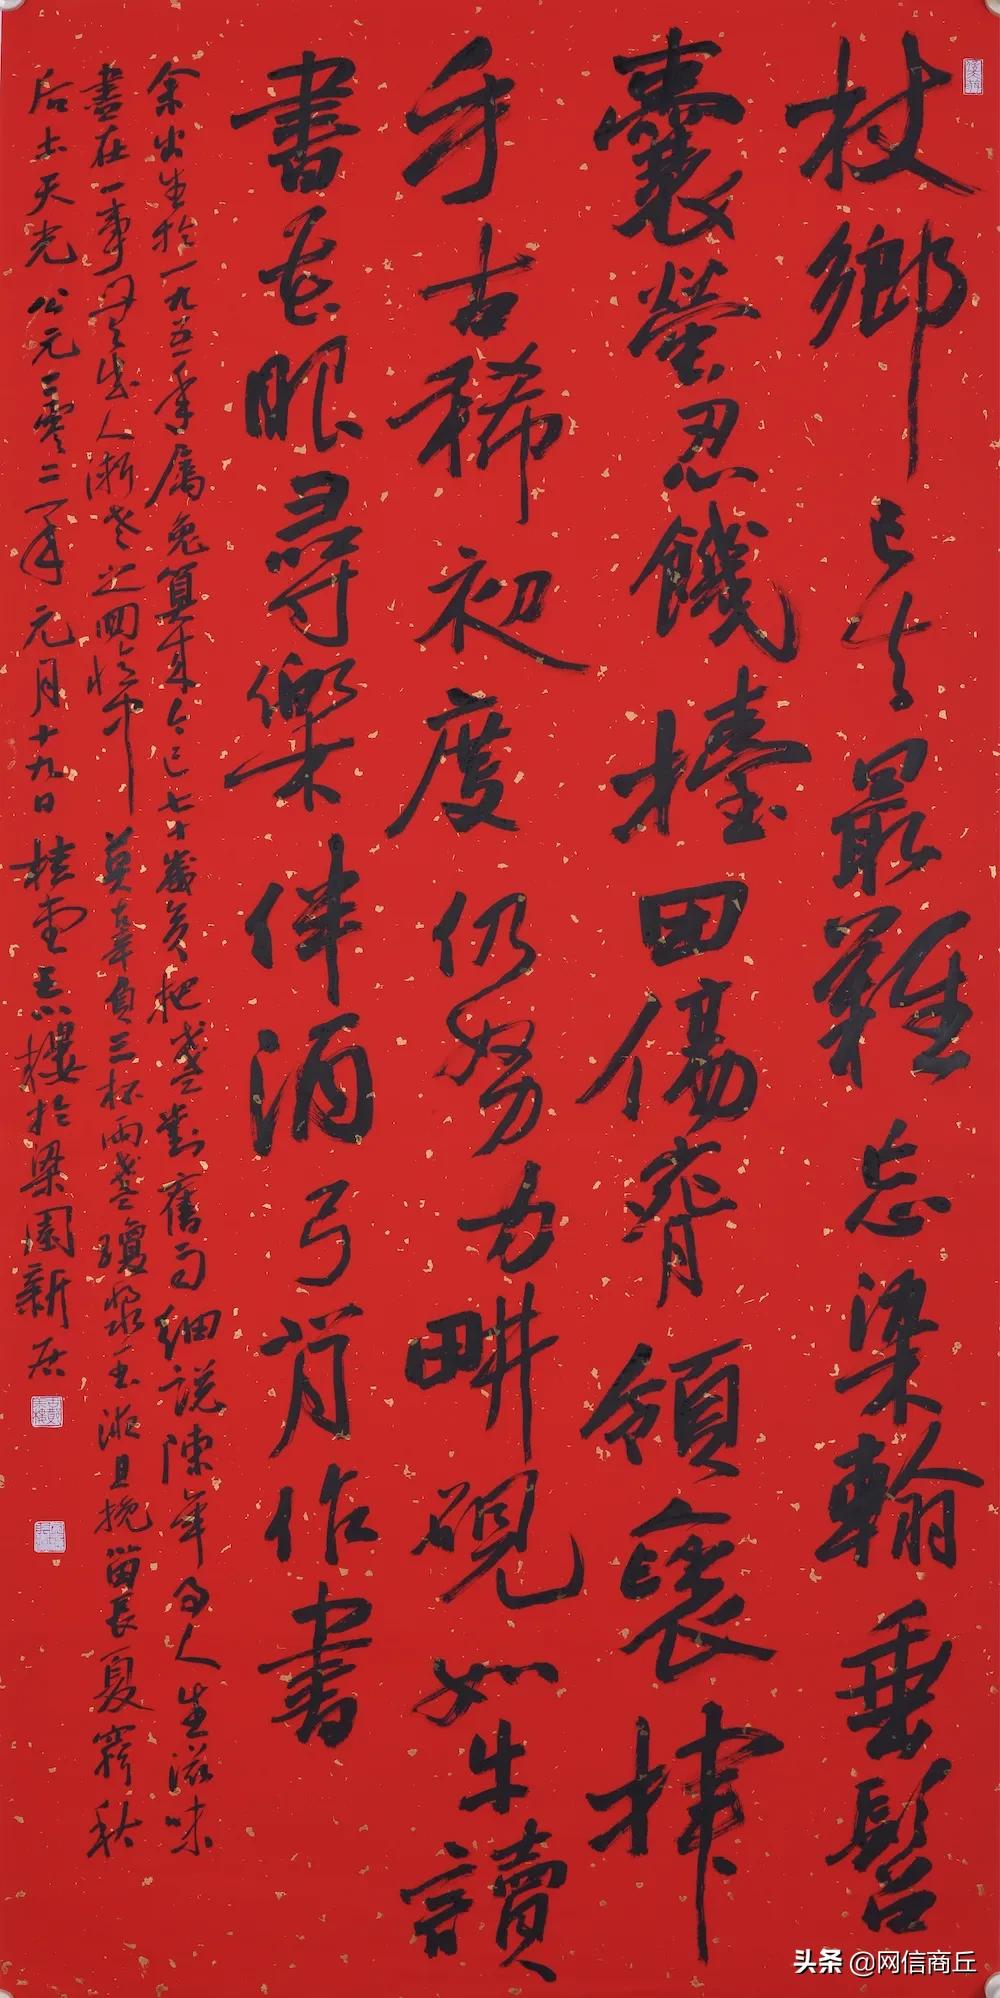 杖鄉已去最難忘染翰垂髫
囊螢忍饑擡田傷脊領褒揮
手古稀初度仍努力畊硯如牛讀
書花眼尋樂伴酒弓背作書
余出生於一九五一年屬兔算來今已七十歲矣把盞對舊雨細說陳年事人生滋味
盡在一事無成人漸老之回憶中莫辜負三杯兩盞瓊漿玉液且挽留長夏窮秋
后土天光公元二零二一年元月十九日樓於梁園新居
头条 @网信商丘